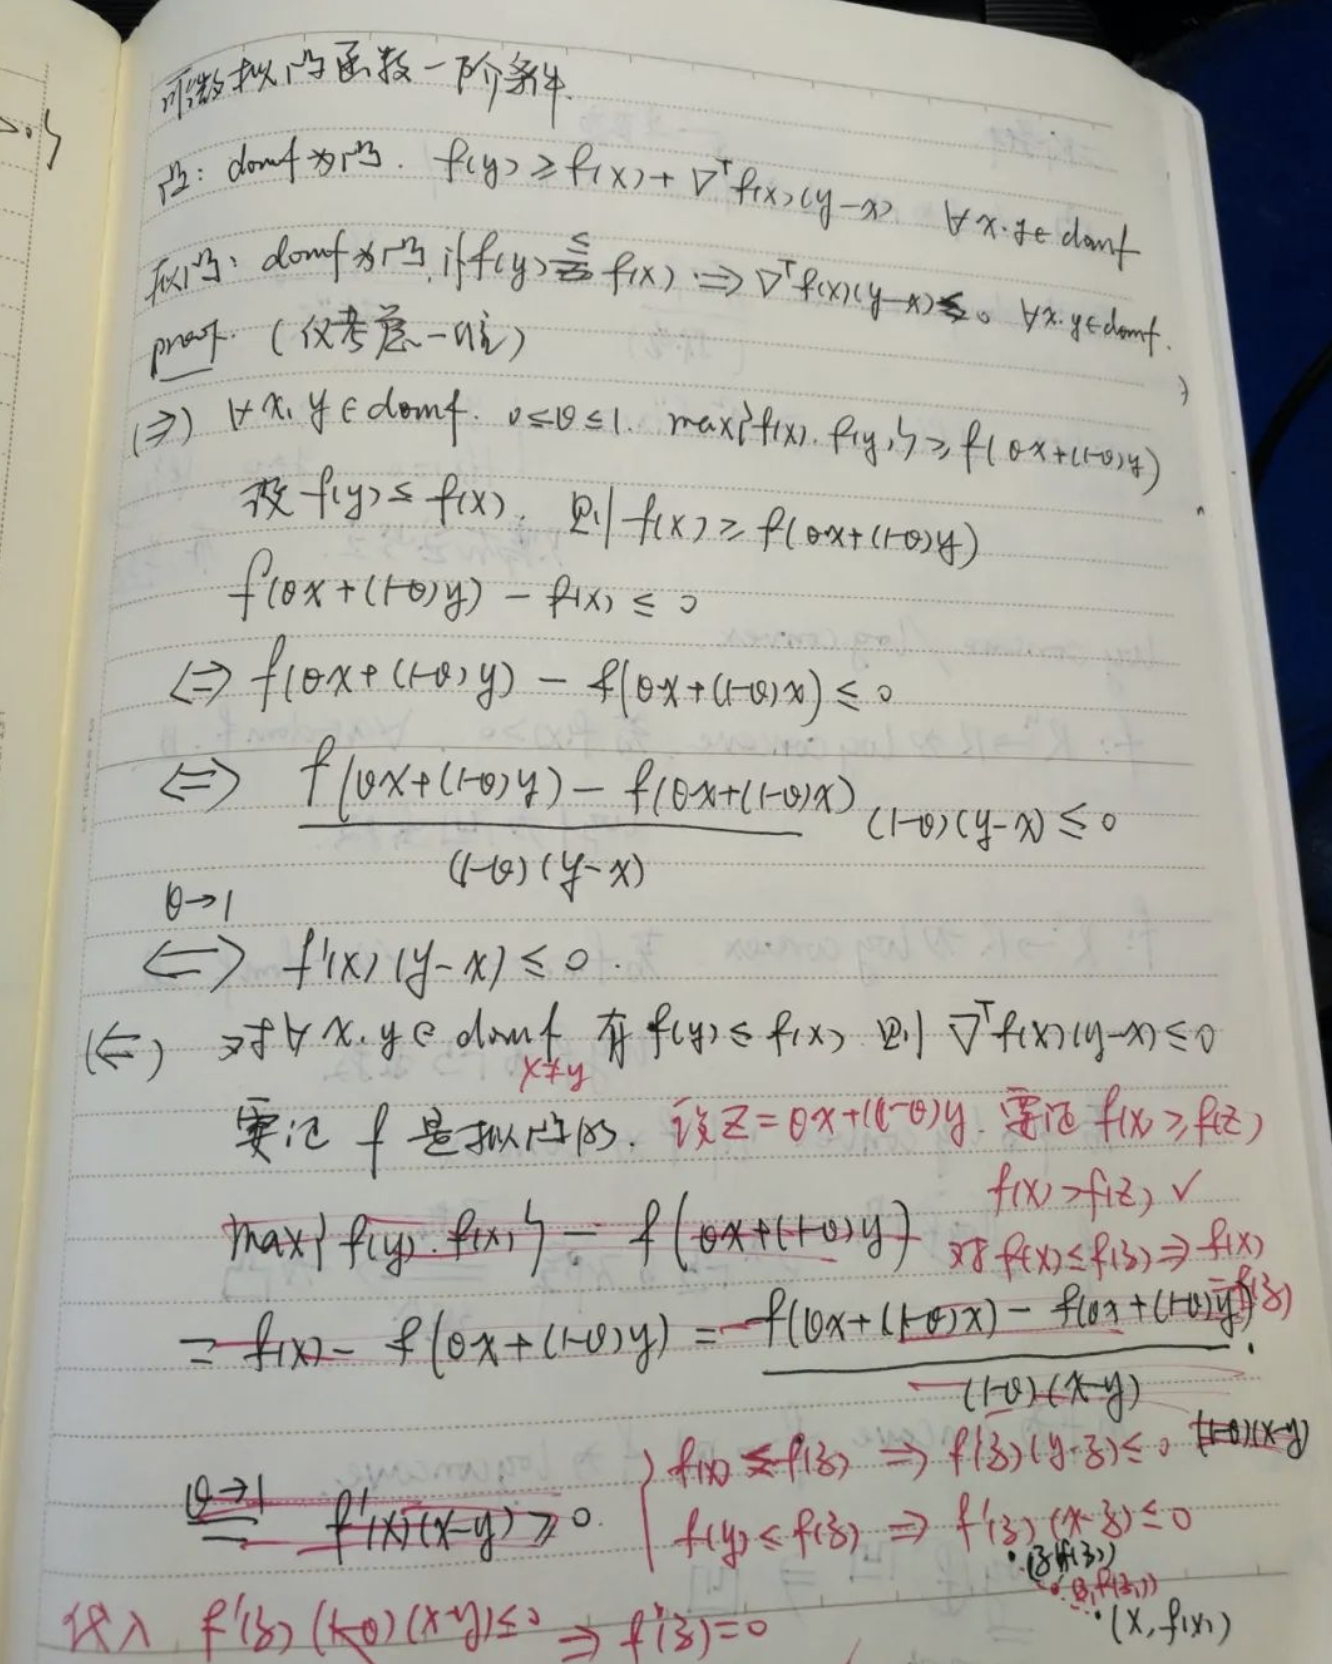 可微拟凸函数一阶条件.
凸: domf为凸. f(y) ≥ f(x) + ∇ᵀf(x)(y-x) ∀x.y∈domf
拟凸: domf为凸, if f(y) ≤ f(x) ⇒ ∇ᵀf(x)(y-x) ≤ 0 ∀x.y∈domf.
proof. (仅考虑一维)
(⇒) ∀x, y∈domf. 0≤θ≤1. max{f(x), f(y)} ≥ f(θx+(1-θ)y)
设 f(y) ≤ f(x), 则 f(x) ≥ f(θx+(1-θ)y)
f(θx+(1-θ)y) - f(x) ≤ 0
⇔ f(θx+(1-θ)y) - f(θx+(1-θ)x) ≤ 0
⇔ f(θx+(1-θ)y) - f(θx+(1-θ)x) (1-θ)(y-x) ≤ 0
(1-θ)(y-x)
θ→1
⇔ f'(x)(y-x) ≤ 0.
(⇐) 对∀x.y∈domf 有 f(y) ≤ f(x) 则 ∇ᵀf(x)(y-x) ≤ 0
x≠y
要证 f 是拟凸的. 设z=θx+(1-θ)y. 要证 f(x) ≥ f(z)
f(x)>f(z) ✓
max{f(y), f(x)} - f(θx+(1-θ)y) 对 f(x)≤f(z) ⇒ f(x)
=f(z)
= f(x) - f(θx+(1-θ)y) = f(θx+(1-θ)x) - f(θx+(1-θ)y) .
(1-θ)(x-y)
(1-θ)(x-y)
f(x) ≤ f(z) ⇒ f'(z)(y-z) ≤ 0
θ→1
= f'(x)(x-y) ≥ 0.
f(y) ≤ f(z) ⇒ f'(z)(x-z) ≤ 0
(z,f(z))
(z₁,f(z₁))
(x, f(x))
代入 f'(z)(1-θ)(x-y)≤0 ⇒ f'(z)=0